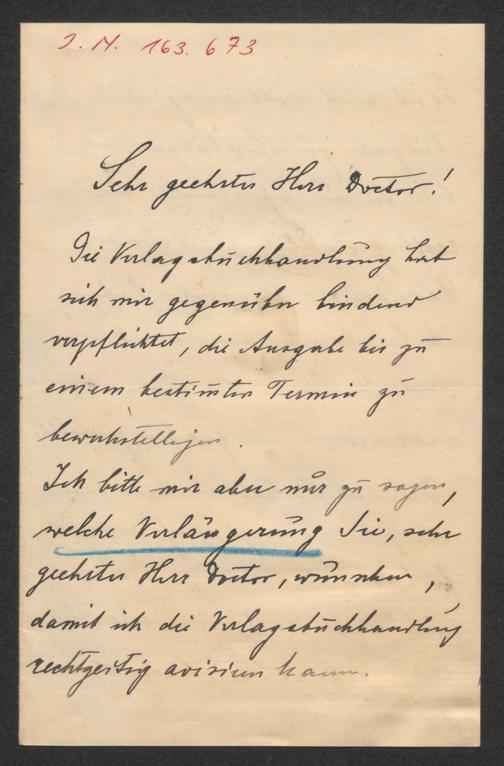 J. N. 163.673
Sehr geehrter Herr Doctor!
Die Verlagsbuchhandlung hat
sich mir gegenüber bindend
verpflichtet, die Ausgabe bis zu
einem bestimten Termin zu
bewerkstelligen.
Ich bitte mir aber nur zu sagen,
welche Verlängerung Sie, sehr
geehrter Herr Doctor, wünschen,
damit ich die Verlagsbuchhandlung
rechtzeitig avisieren kann.